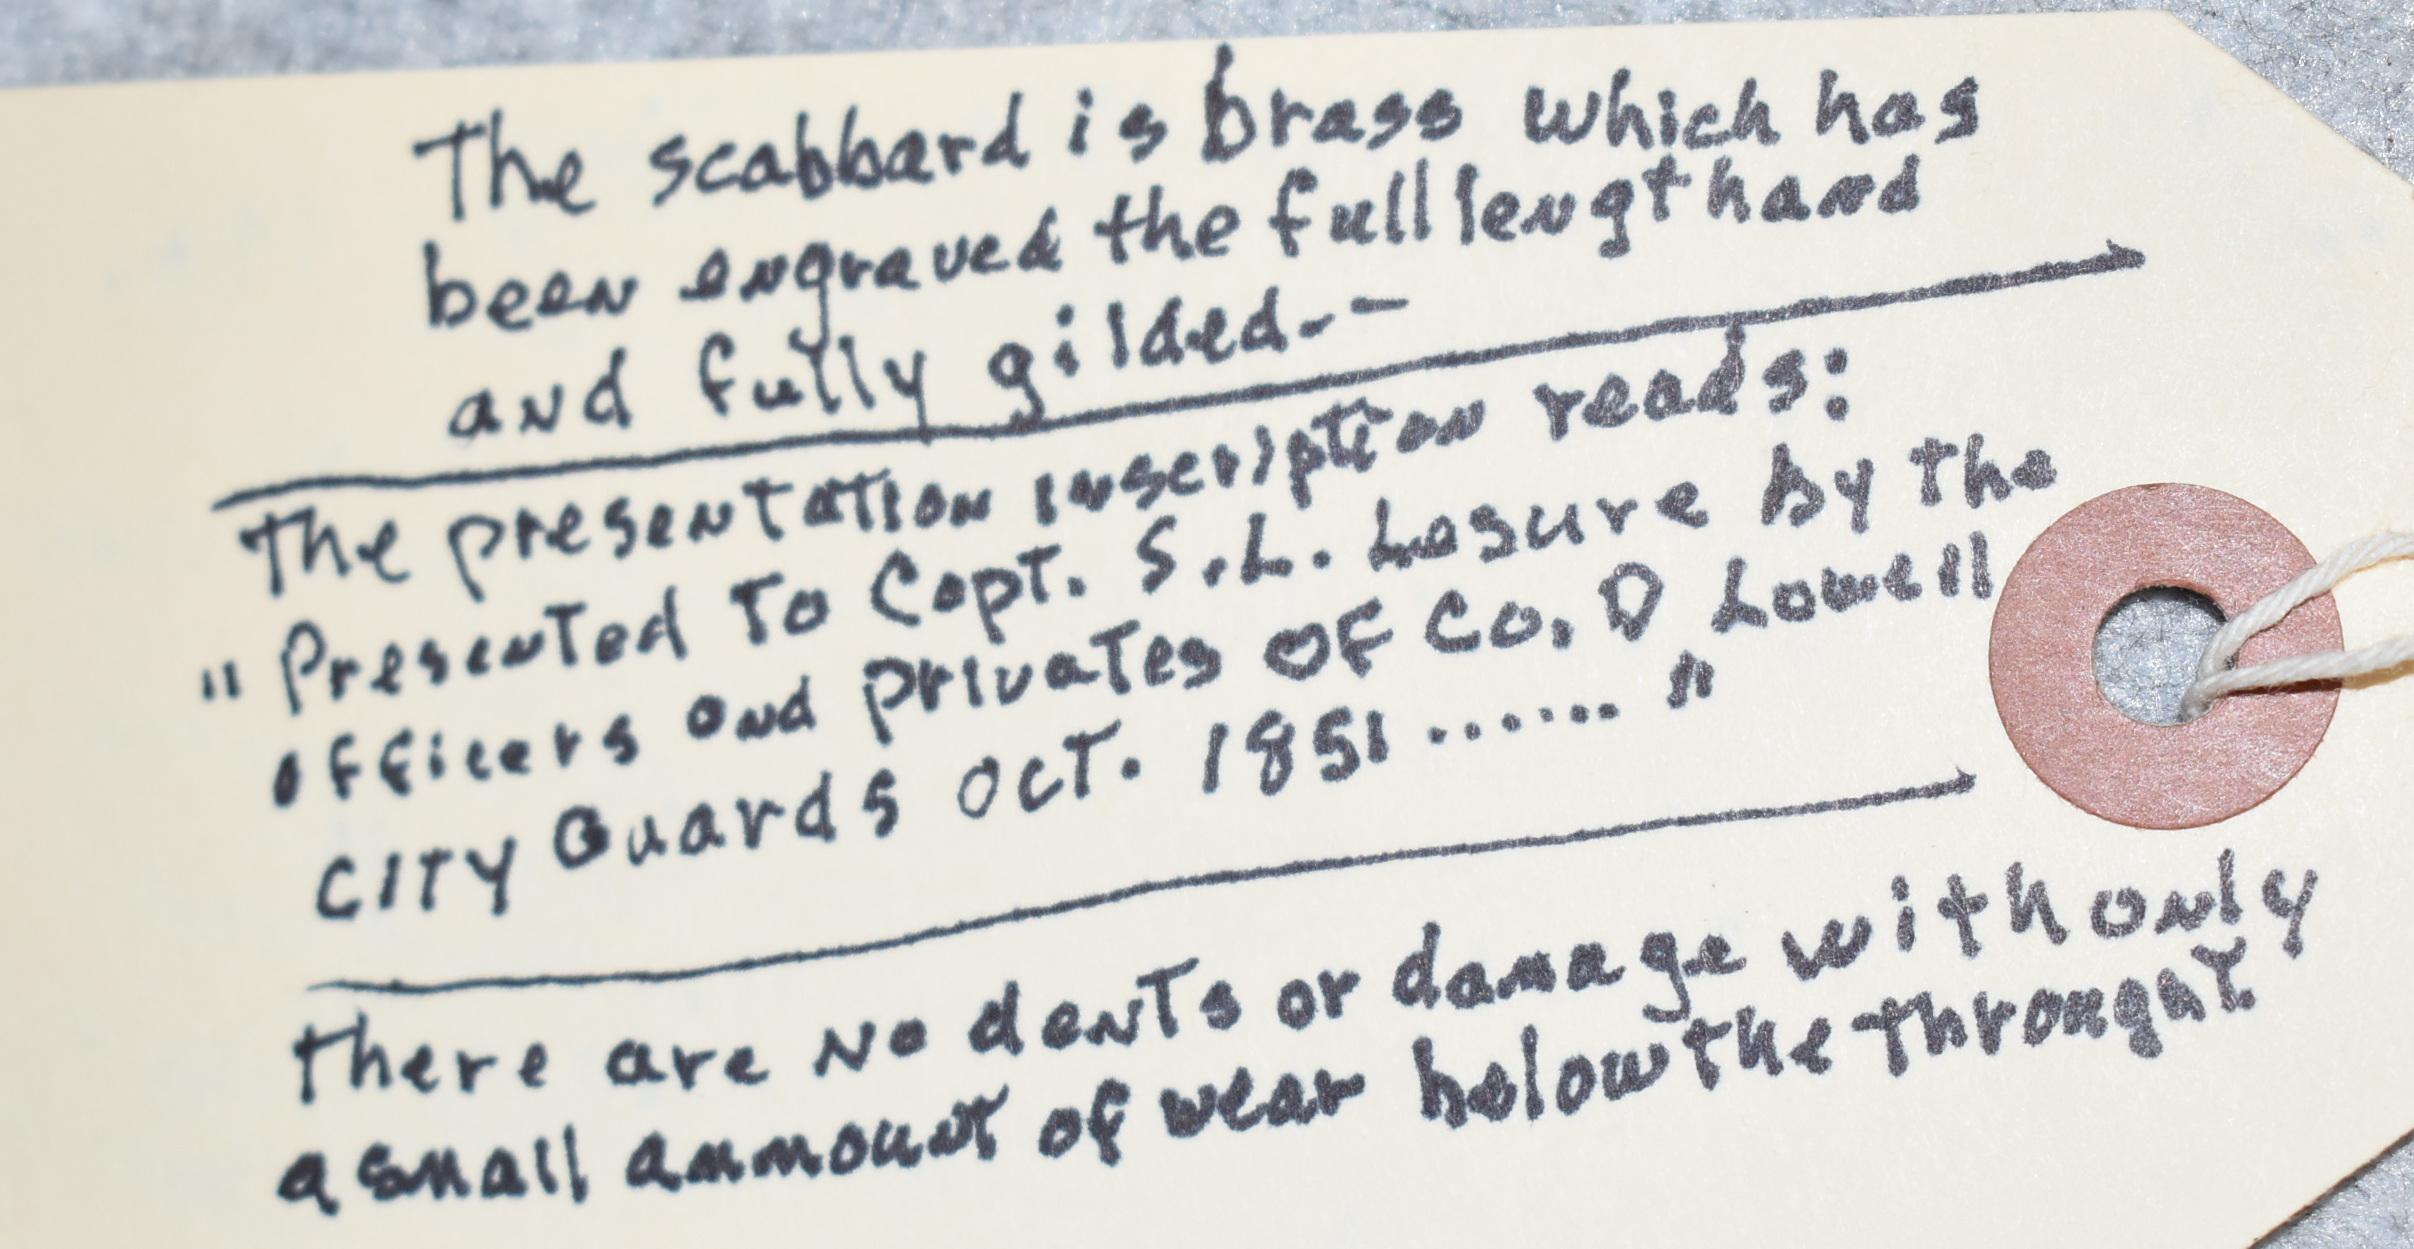 The scabbard is brass which has
been engraved the full length and
and fully gilded.-
The presentation inscription reads:
"Presented To Capt. S.L. Lesure by the
officers and privates of Co. D Lowell
CITY Guards OCT. 1851 ......"
there are No dents or damage with only
a small ammount of wear below the throught.